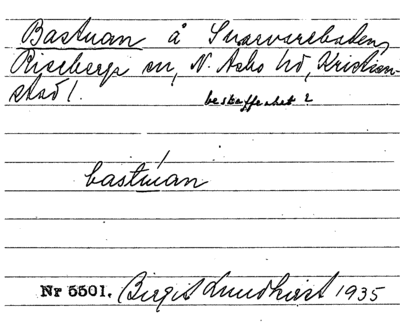 Bastuan å Svarvarebacken,
Riseberga sn, N. Åsbo hd, Kristian-
stad l.
beskaffenhet?
bastúan
Nr 5501. Birgit Lundkvist 1935